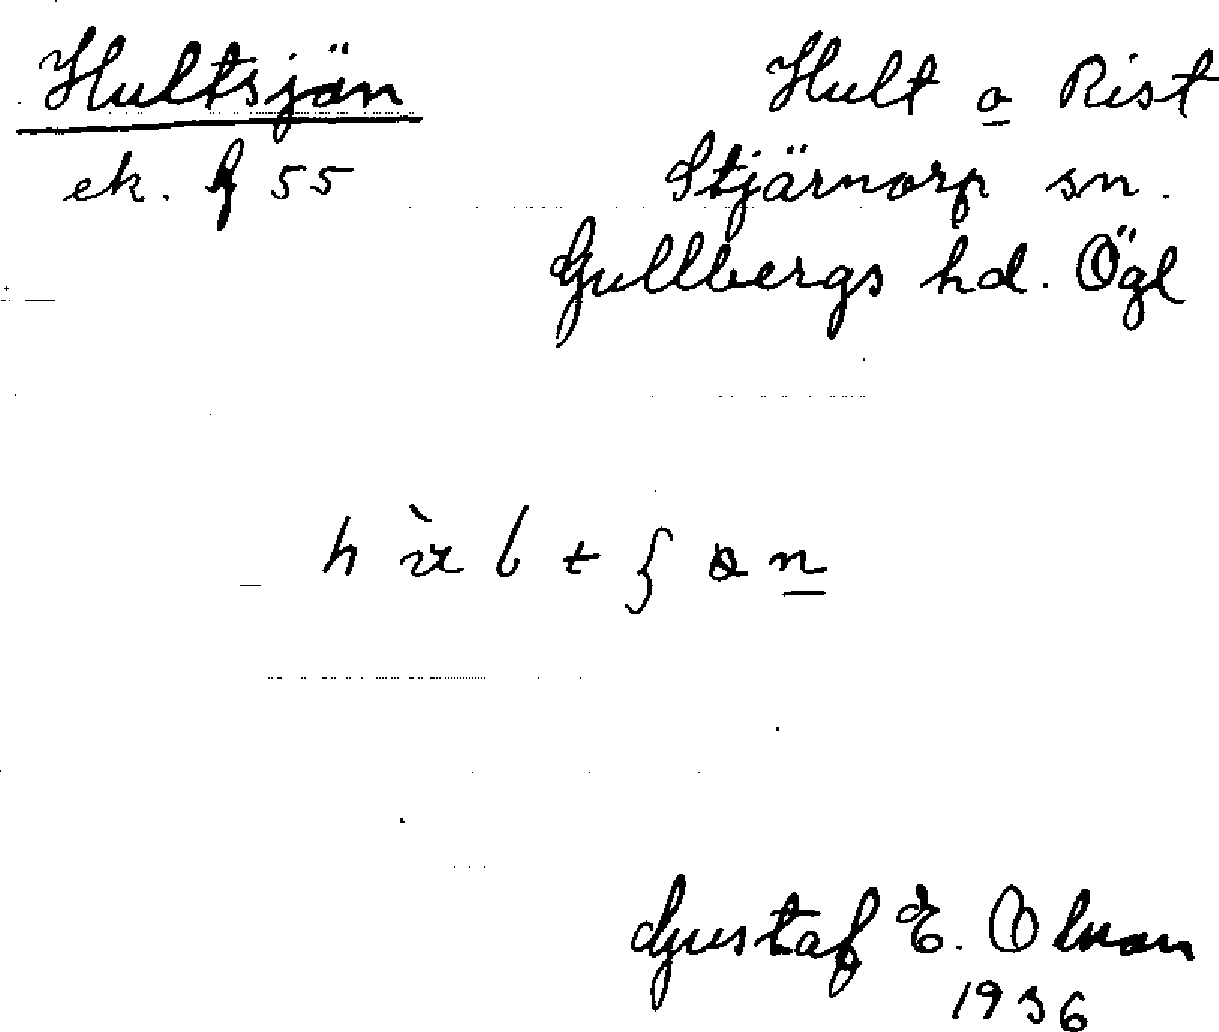 Hultsjön
ek. 55
Hult o Rist
Stjärnorp sn.
Gullbergs hd. Ögl
Gustaf E. Olsson
1936